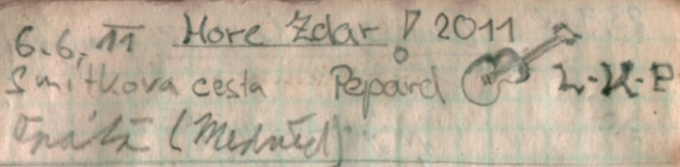 6.6.11 Hore Zdar! 2011
Smítkova cesta Pepard L-K-P
(Medvěd)